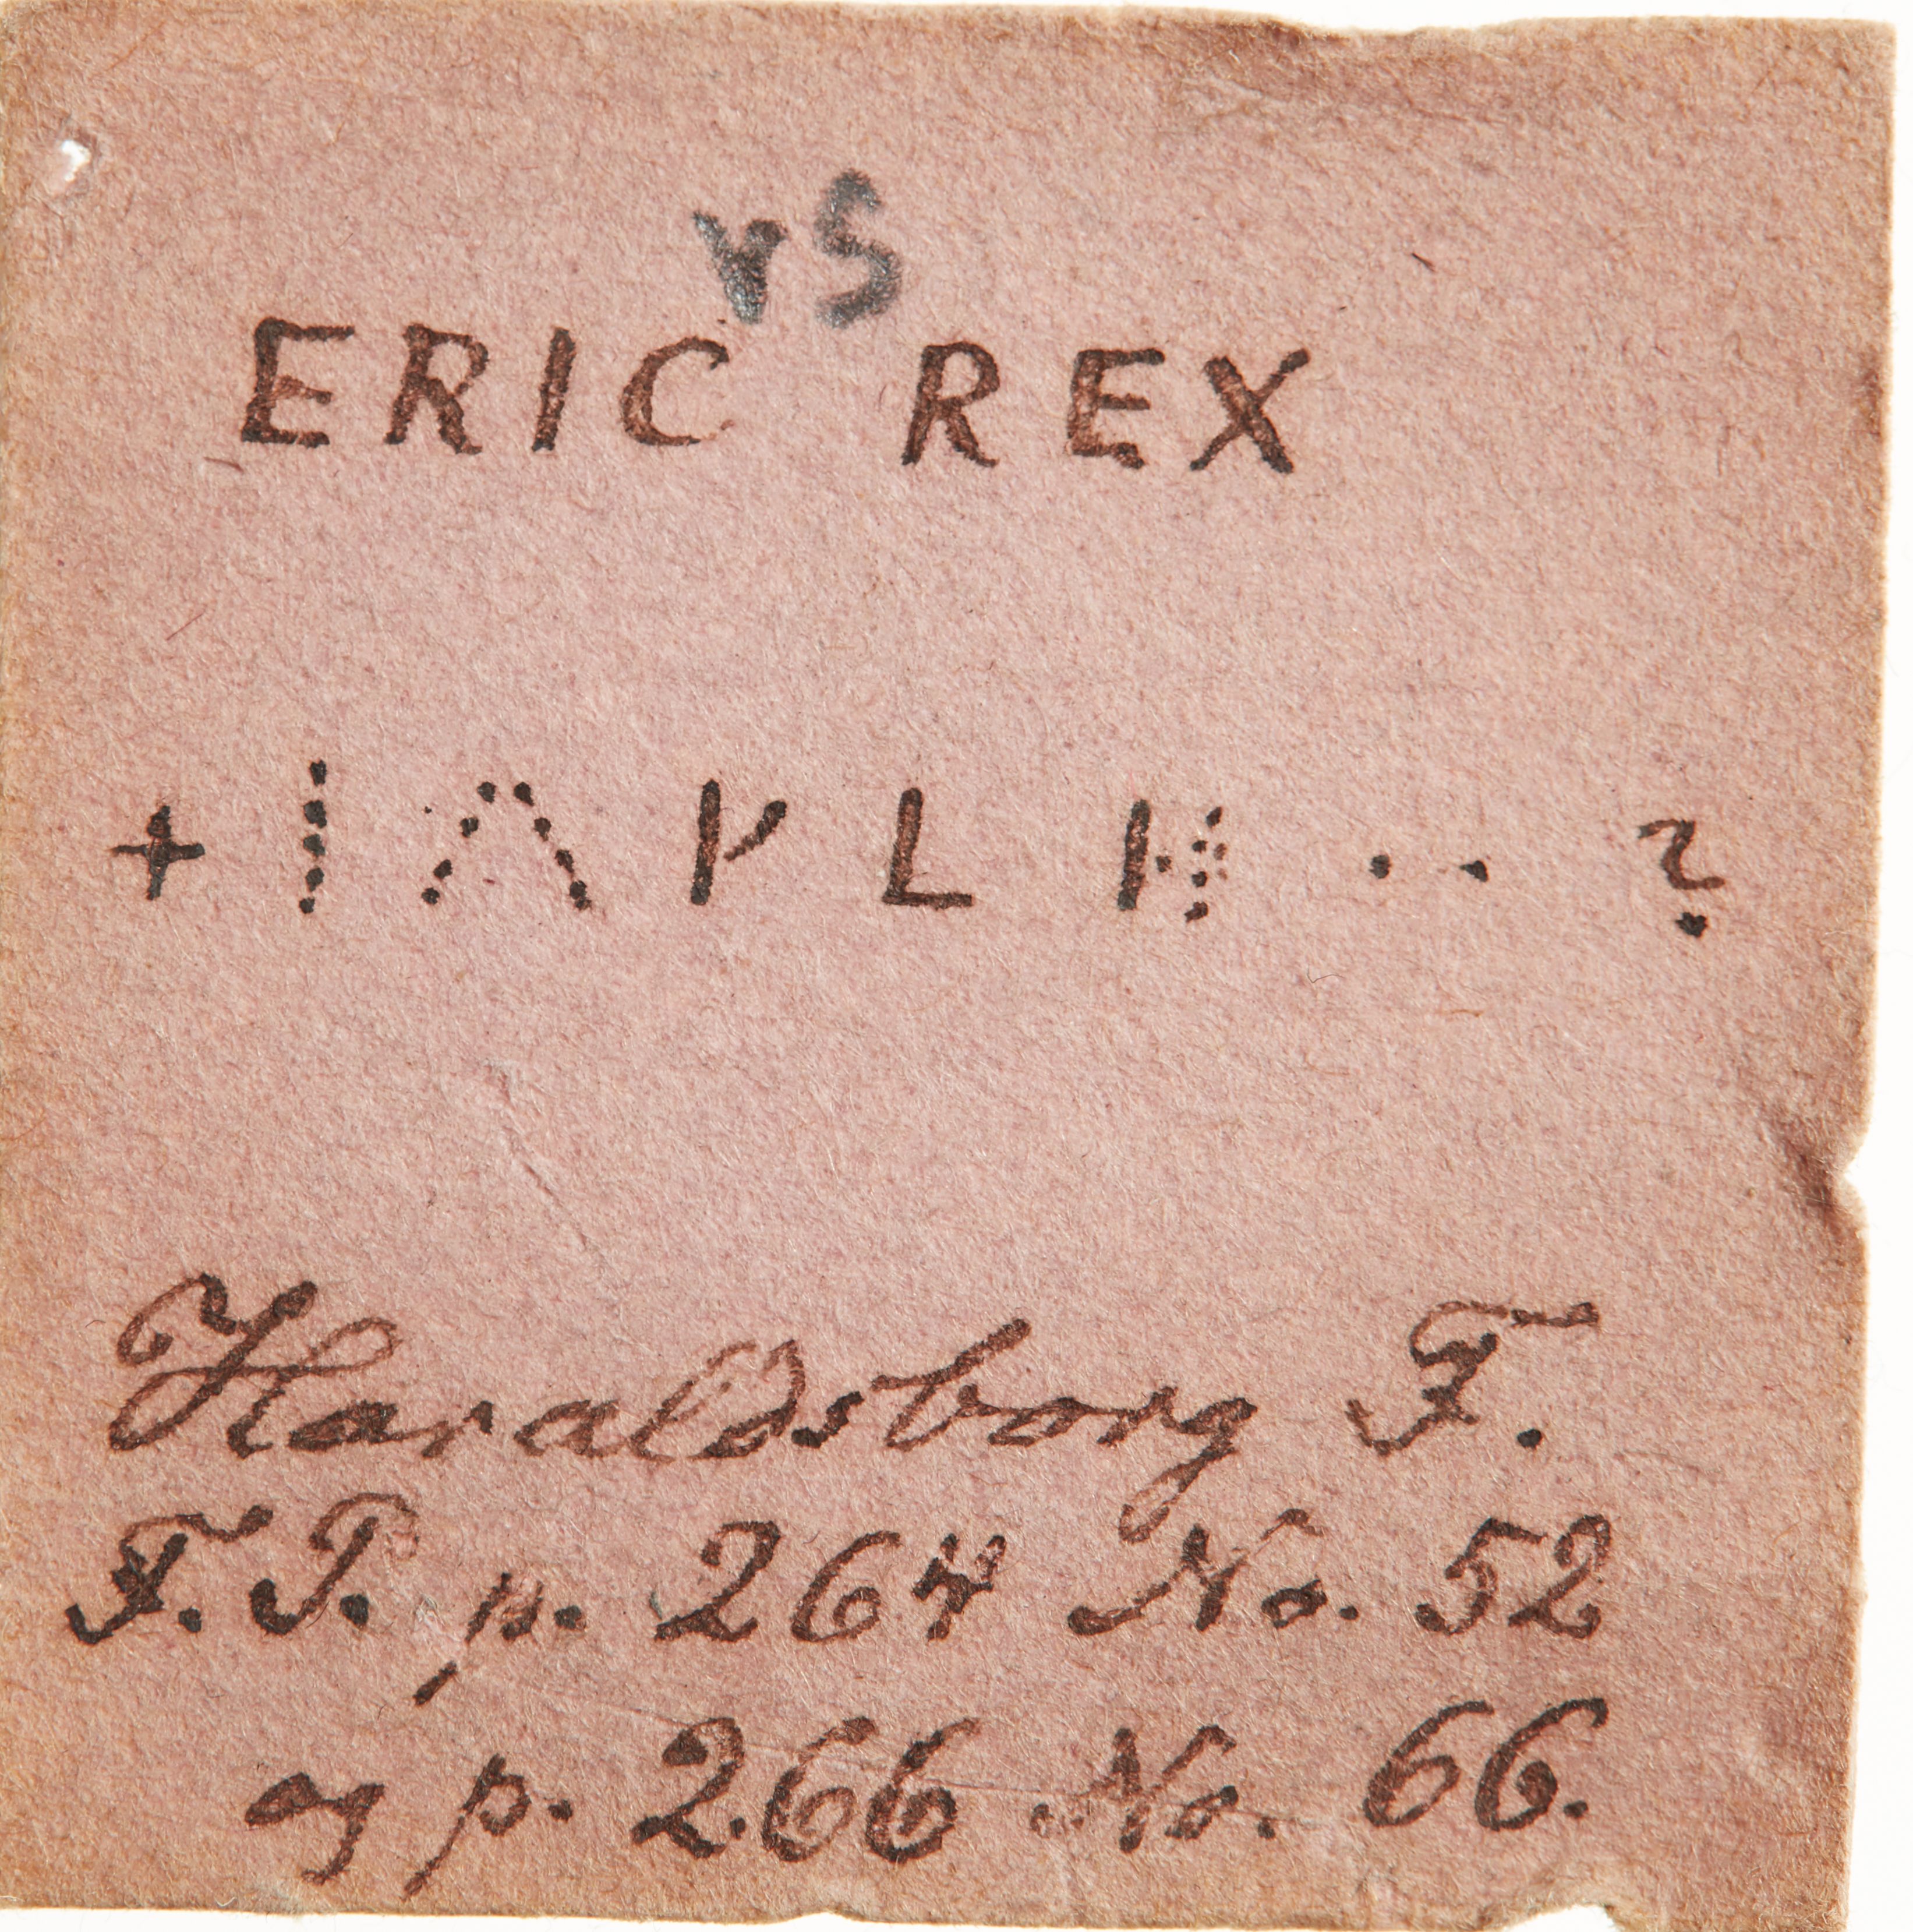 vs
ERIC REX
+ I Λ Y L H · · ?
Haraldsborg F.
F. T. p. 264 No. 52
og p. 266 No. 66.